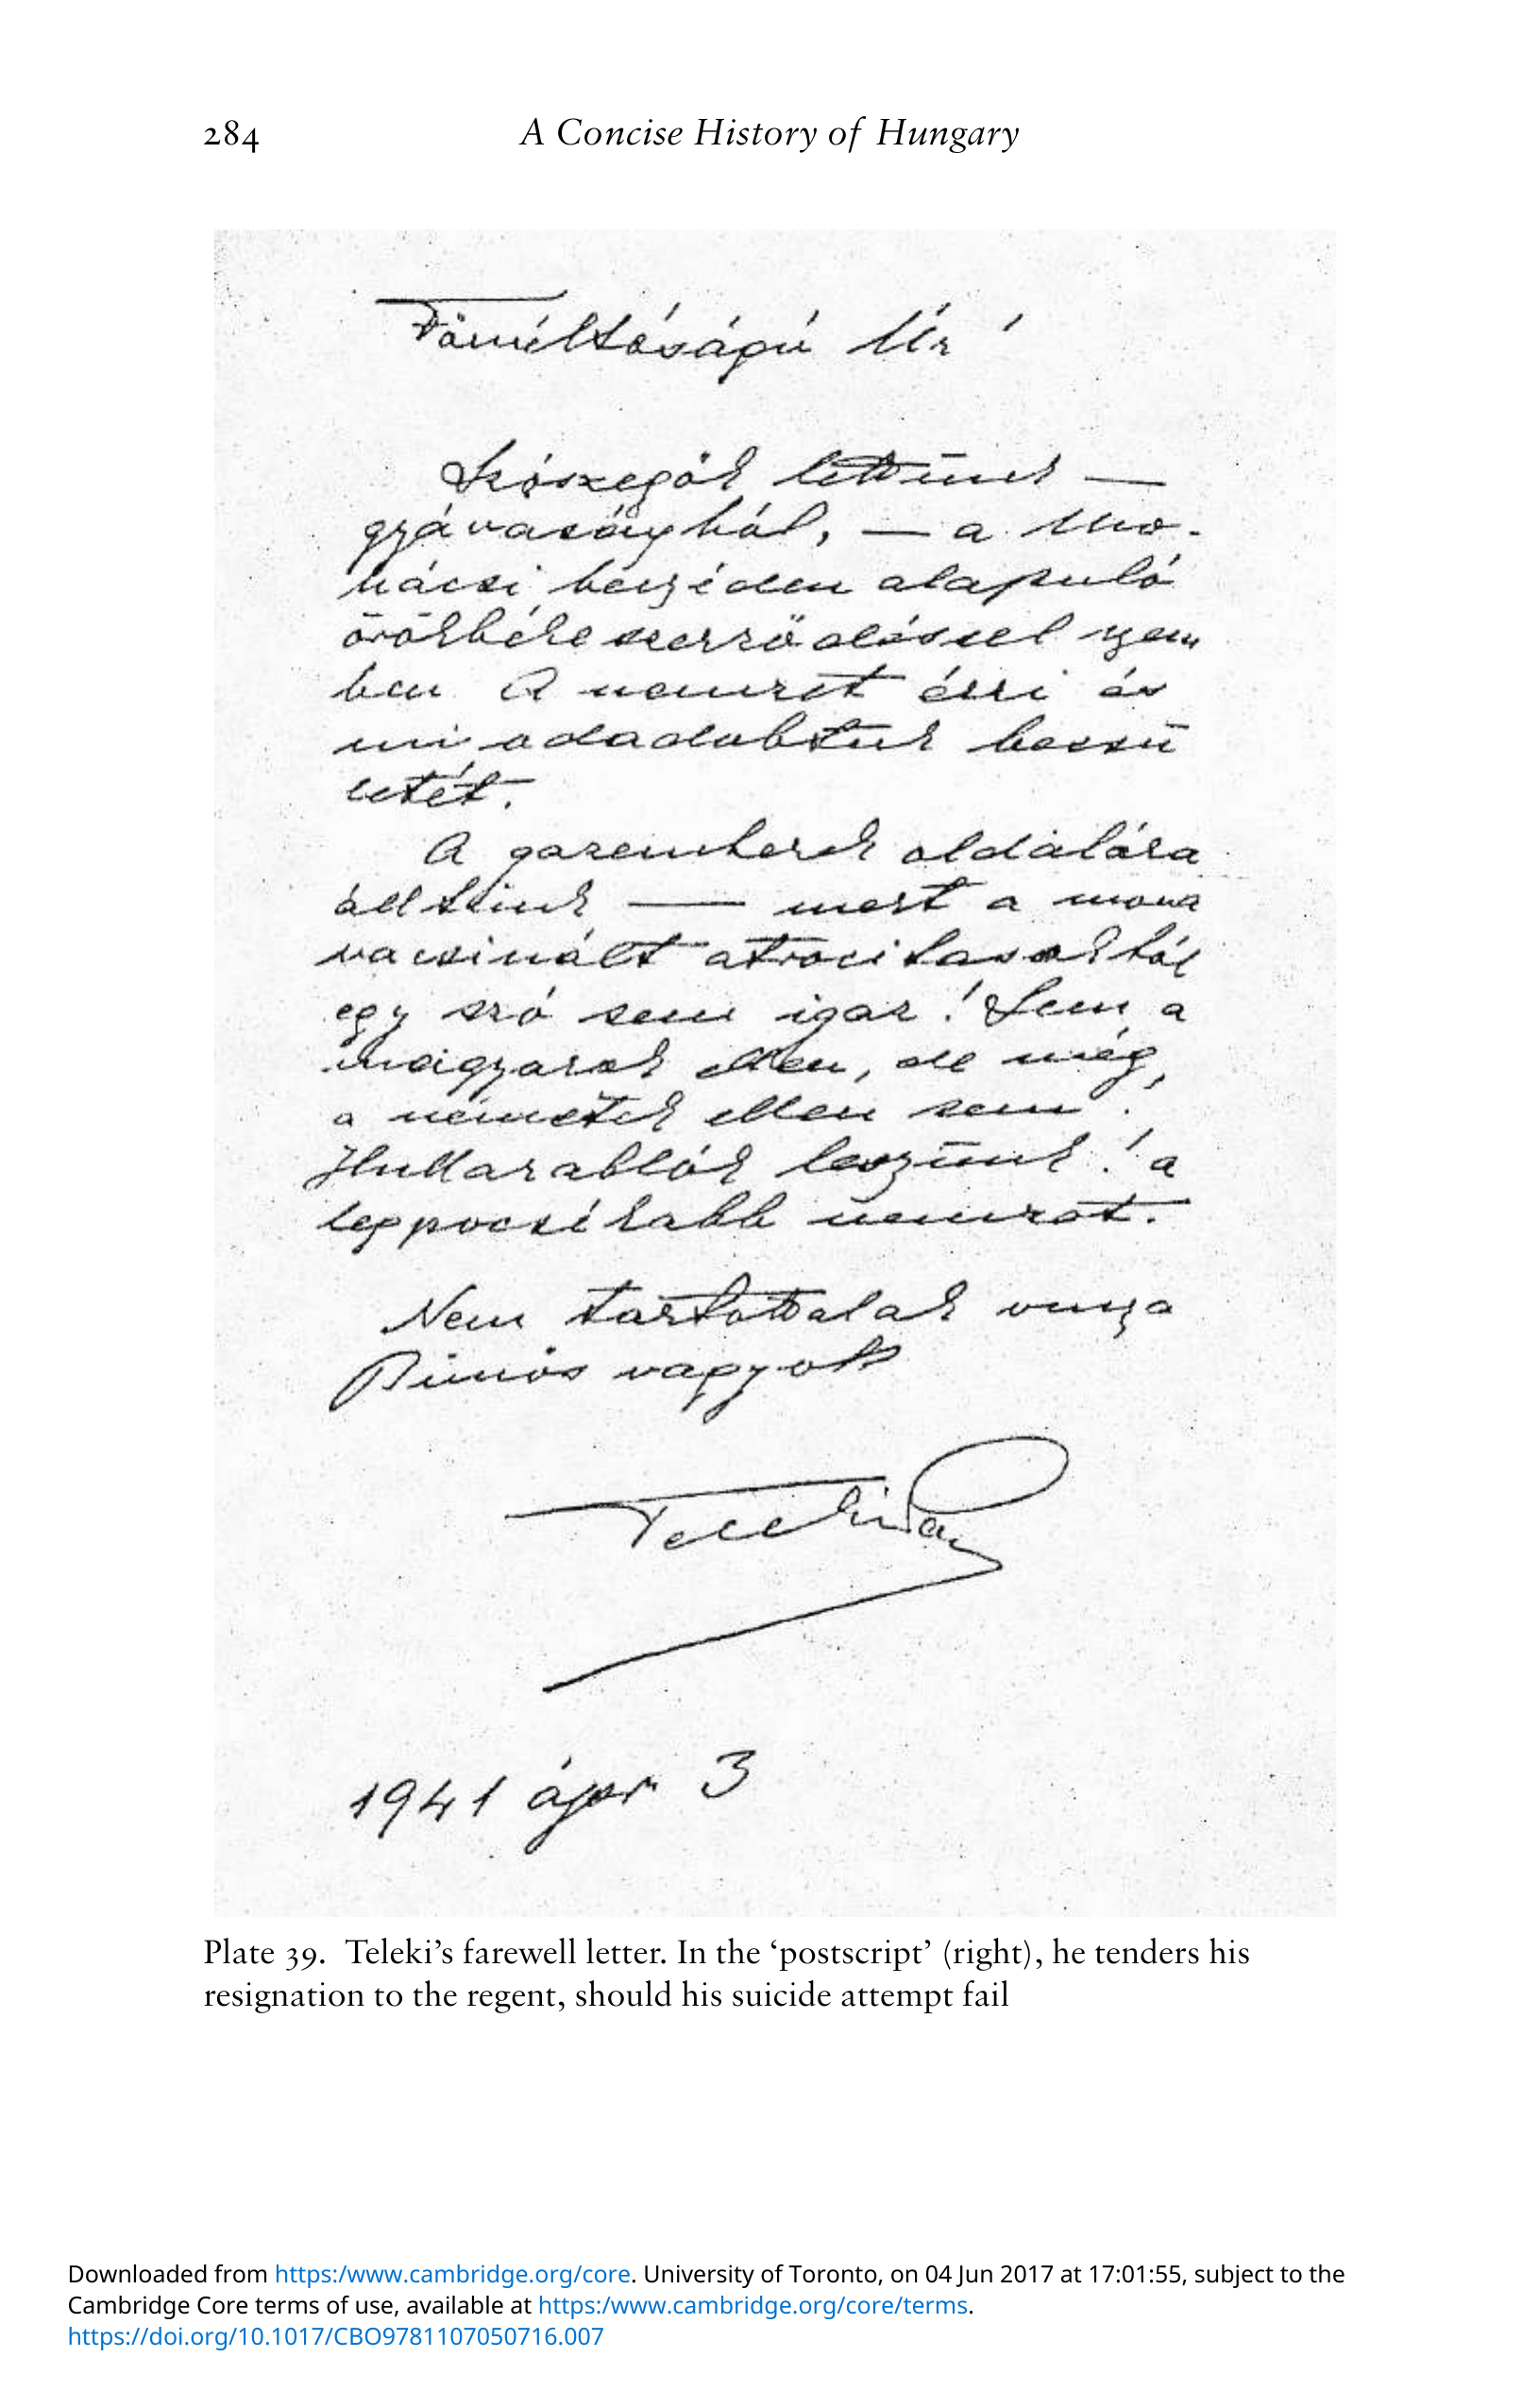 284
A Concise History of Hungary
Főméltóságú Úr!
Szószegők lettünk —
gyávaságból, — a mo-
hácsi beszéden alapuló
örökbéke szerződéssel szem
ben. A nemzet érzi és
mi odadobtuk becsü
letét.
A gazemberek oldalára
álltunk — mert a mond
vacsinált atrocitásokból
egy szó sem igaz! Sem a
magyarok ellen, de még
a németek ellen sem!
Hullarablók leszünk! a
legpocsékabb nemzet.
Nem tartottalak vissza
Bűnös vagyok
Teleki Pál
1941 ápr 3
Plate 39. Teleki’s farewell letter. In the ‘postscript’ (right), he tenders his
resignation to the regent, should his suicide attempt fail
Downloaded from https:/www.cambridge.org/core. University of Toronto, on 04 Jun 2017 at 17:01:55, subject to the
Cambridge Core terms of use, available at https:/www.cambridge.org/core/terms.
https://doi.org/10.1017/CBO9781107050716.007